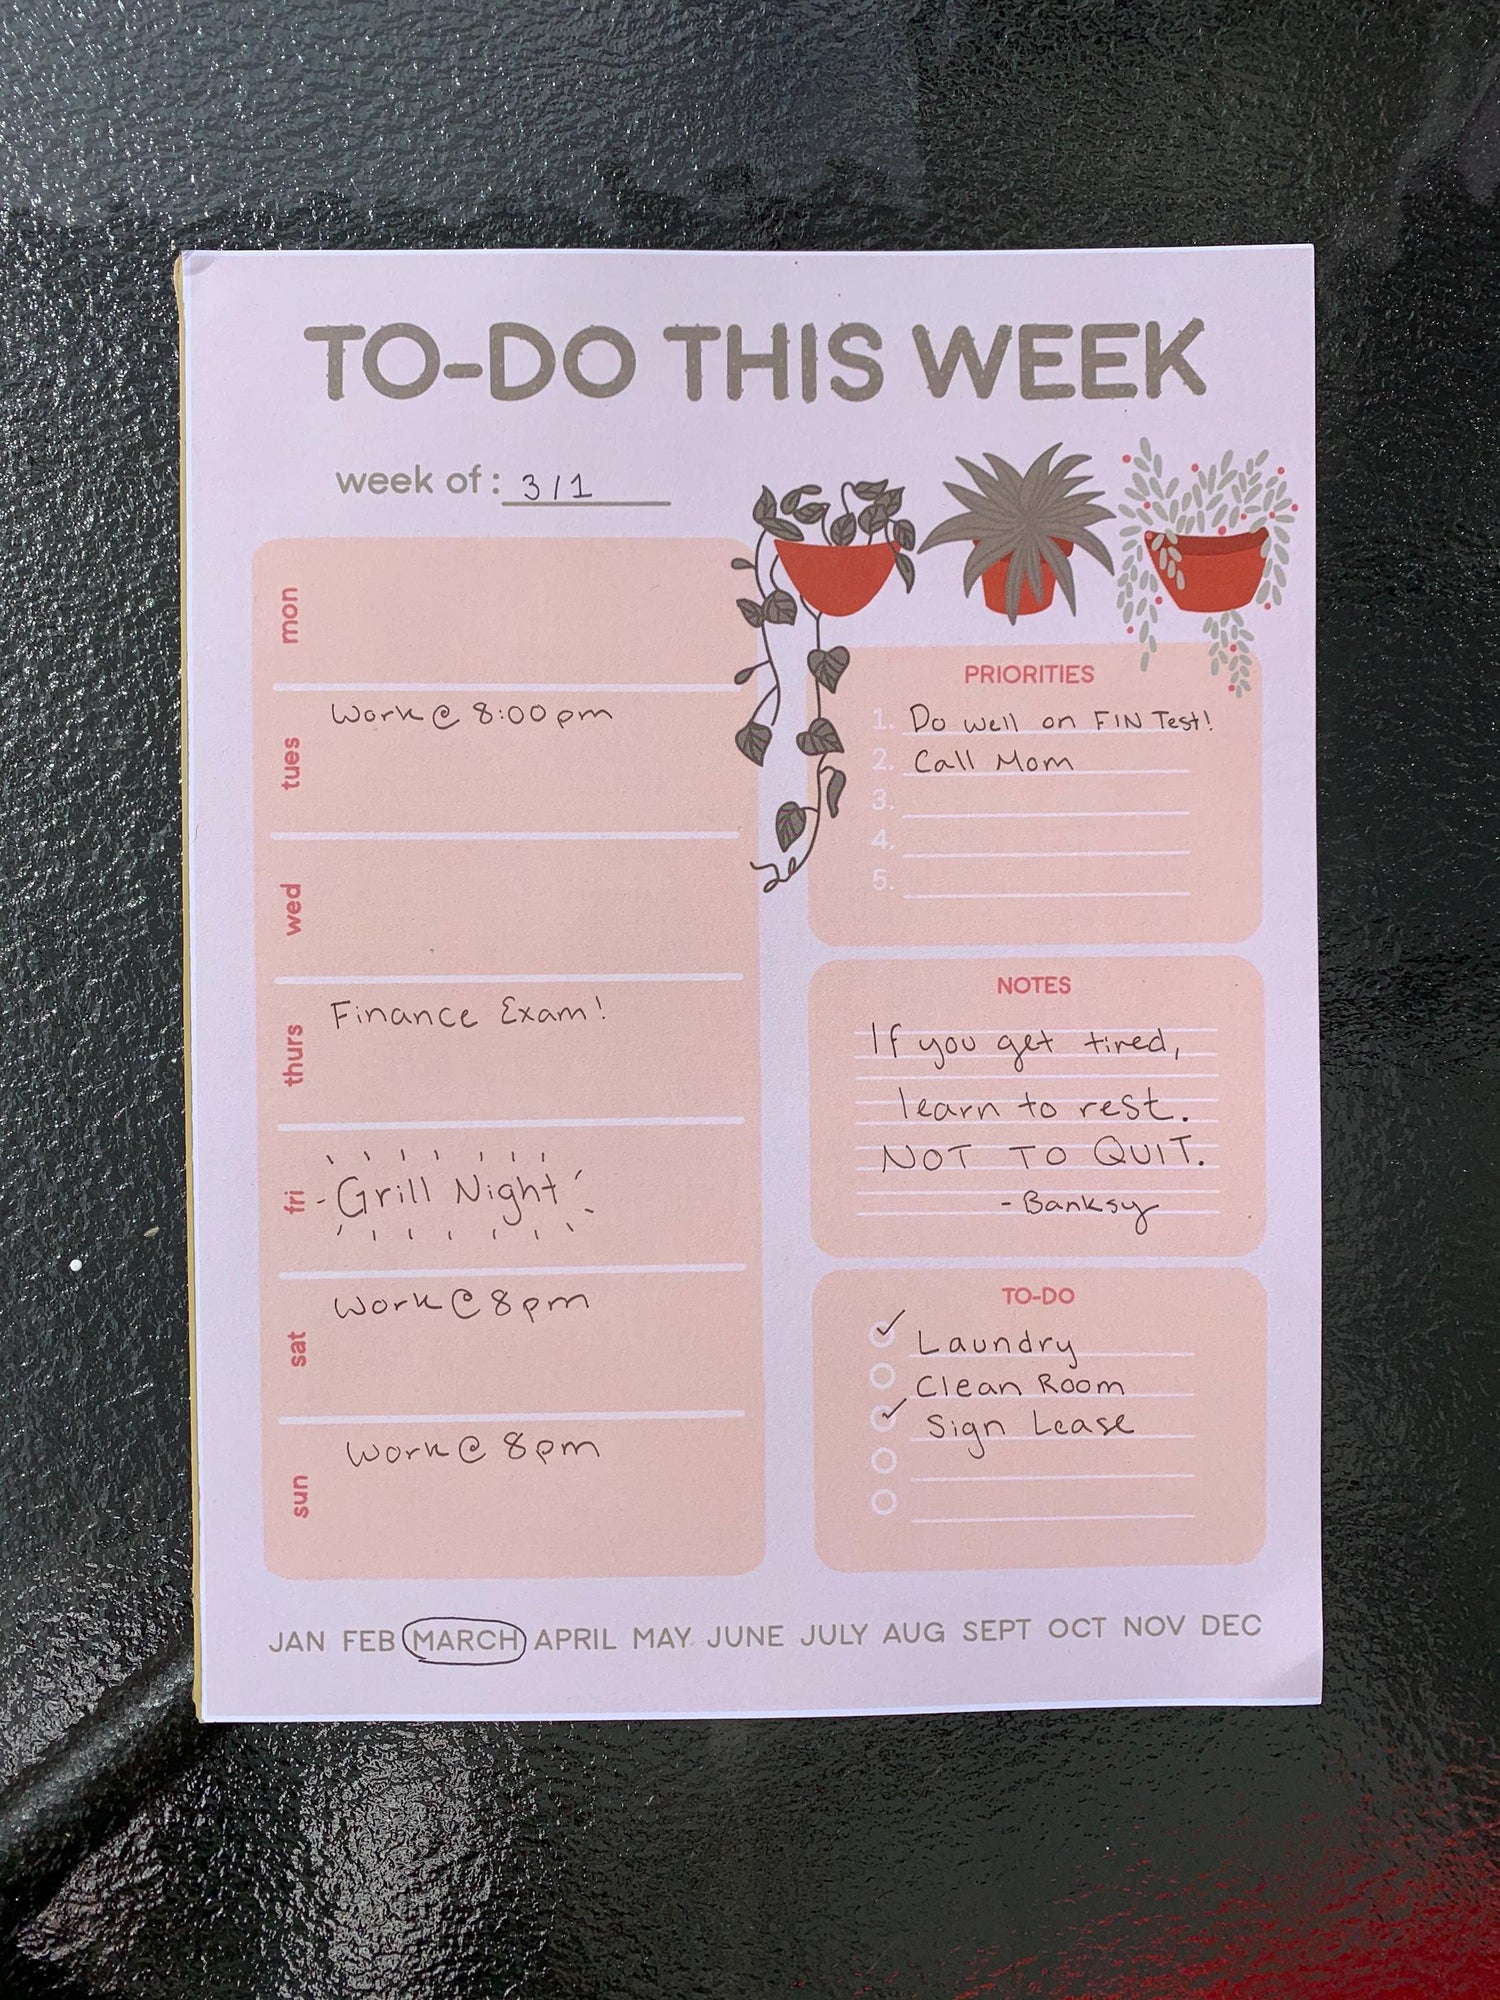 TO-DO THIS WEEK
week of: 3/1
mon
tues
Work@ 8:00pm
wed
thurs
Finance Exam!
fri
-Grill Night-
sat
Work@8pm
sun
Work@ 8pm
PRIORITIES
1. Do well on FIN Test!
2. Call Mom
3.
4.
5.
NOTES
If you get tired,
learn to rest.
NOT TO QUIT.
-Banksy
TO-DO
✓ Laundry
Clean Room
✓ Sign Lease
JAN FEB MARCH APRIL MAY JUNE JULY AUG SEPT OCT NOV DEC